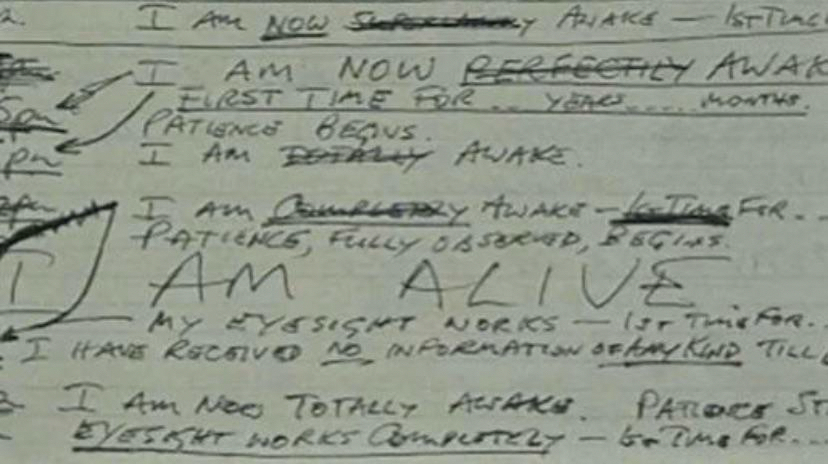 2. I AM NOW AWAKE — 1ST TIME
I AM NOW PERFECTLY AWAK
FIRST TIME FOR .. YEARS .... MONTHS.
PATIENCE BEGINS.
I AM TOTALLY AWAKE.
I AM COMPLETELY AWAKE — 1ST TIME FOR ..
PATIENCE, FULLY OBSERVED, BEGINS.
I AM ALIVE
MY EYESIGHT WORKS — 1ST TIME FOR ..
I HAVE RECEIVED NO INFORMATION OF ANY KIND TILL
I AM NOW TOTALLY AWAKE. PATIENCE ST
EYESIGHT WORKS COMPLETELY — 1ST TIME FOR ...